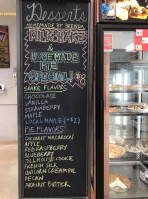 Desserts
HOMEMADE BY BRENDA
MILKSHAKE
&
HOMEMADE
PIE
$8
SHAKE FLAVORS:
CHOCOLATE
VANILLA
STRAWBERRY
MAPLE
LOCAL MAPLE (+$2)
PIE FLAVORS:
COCONUT MACAROON
APPLE
RED RASPBERRY
BLUEBERRY
TOLLHOUSE COOKIE
FRENCH SILK
UNICORN CREAM PIE
PECAN
PEANUT BUTTER